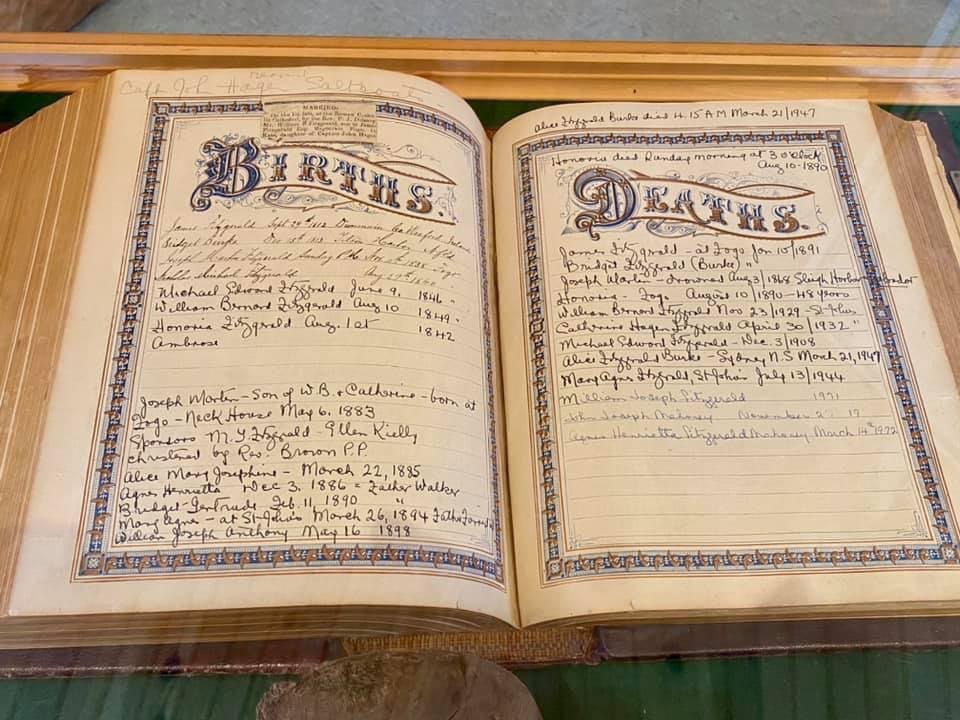 Capt John Hagen Saltboat
MARRIED:
On the 1st inst., at the Roman Catho-
lic Cathedral, by the Rev. P. J. Delaney,
Mr. William B. Fitzgerald, son of James
Fitzgerald Esq. Magistrate Fogo, to
Kate, daughter of Captain John Hagen
BIRTHS.
James Fitzgerald Sept 29th 1812 Co Wexford Ireland
Bridget Burke Dec 18th Tilton
Joseph Martin Fitzgerald Sunday Nov Fogo
Michael Fitzgerald Aug 1840 "
Michael Edward Fitzgerald June 9, 1846 "
William Bernard Fitzgerald Aug 10 1849 "
Honoria Fitzgerald Aug. 1st 1842
Ambrose
Joseph Martin - Son of W.B. & Catherine - born at
Fogo - Neck House May 6. 1883
Sponsors M. J. Fitzgerald - Ellen Kielly
christened by Rev. Brown P.P.
Alice Mary Josephine - March 22, 1885
Agnes Henrietta Dec 3. 1886 = Father Walker
Bridget Gertrude Feb. 11, 1890 "
Mary Agnes - at St. John's March 26, 1894 Father
William Joseph Anthony May 16 1898
Alice Fitzgerald Burke died 4.15 A M March 21/1947
Honoria died Sunday morning at 3 o'clock
Aug 10 - 1890
DEATHS.
James Fitzgerald - at Fogo Jan 15/1891
Bridget Fitzgerald (Burke) "
Joseph Martin - drowned Aug 3/1868 Sleigh Harbor Labrador
Honoria - Fogo August 10/1890 - 48 years
William Bernard Fitzgerald Nov 23/1929 - St John's
Catherine Hagen Fitzgerald April 30/1932 "
Michael Edward Fitzgerald - Dec. 3/1908
Alice Fitzgerald Burke - Sydney N.S March 21, 1947
Mary Agnes Fitzgerald, St John's July 13/1944
William Joseph Fitzgerald 1971
John Joseph Mahoney November 2. 19
Agnes Henrietta Fitzgerald Mahoney March 14th 1972